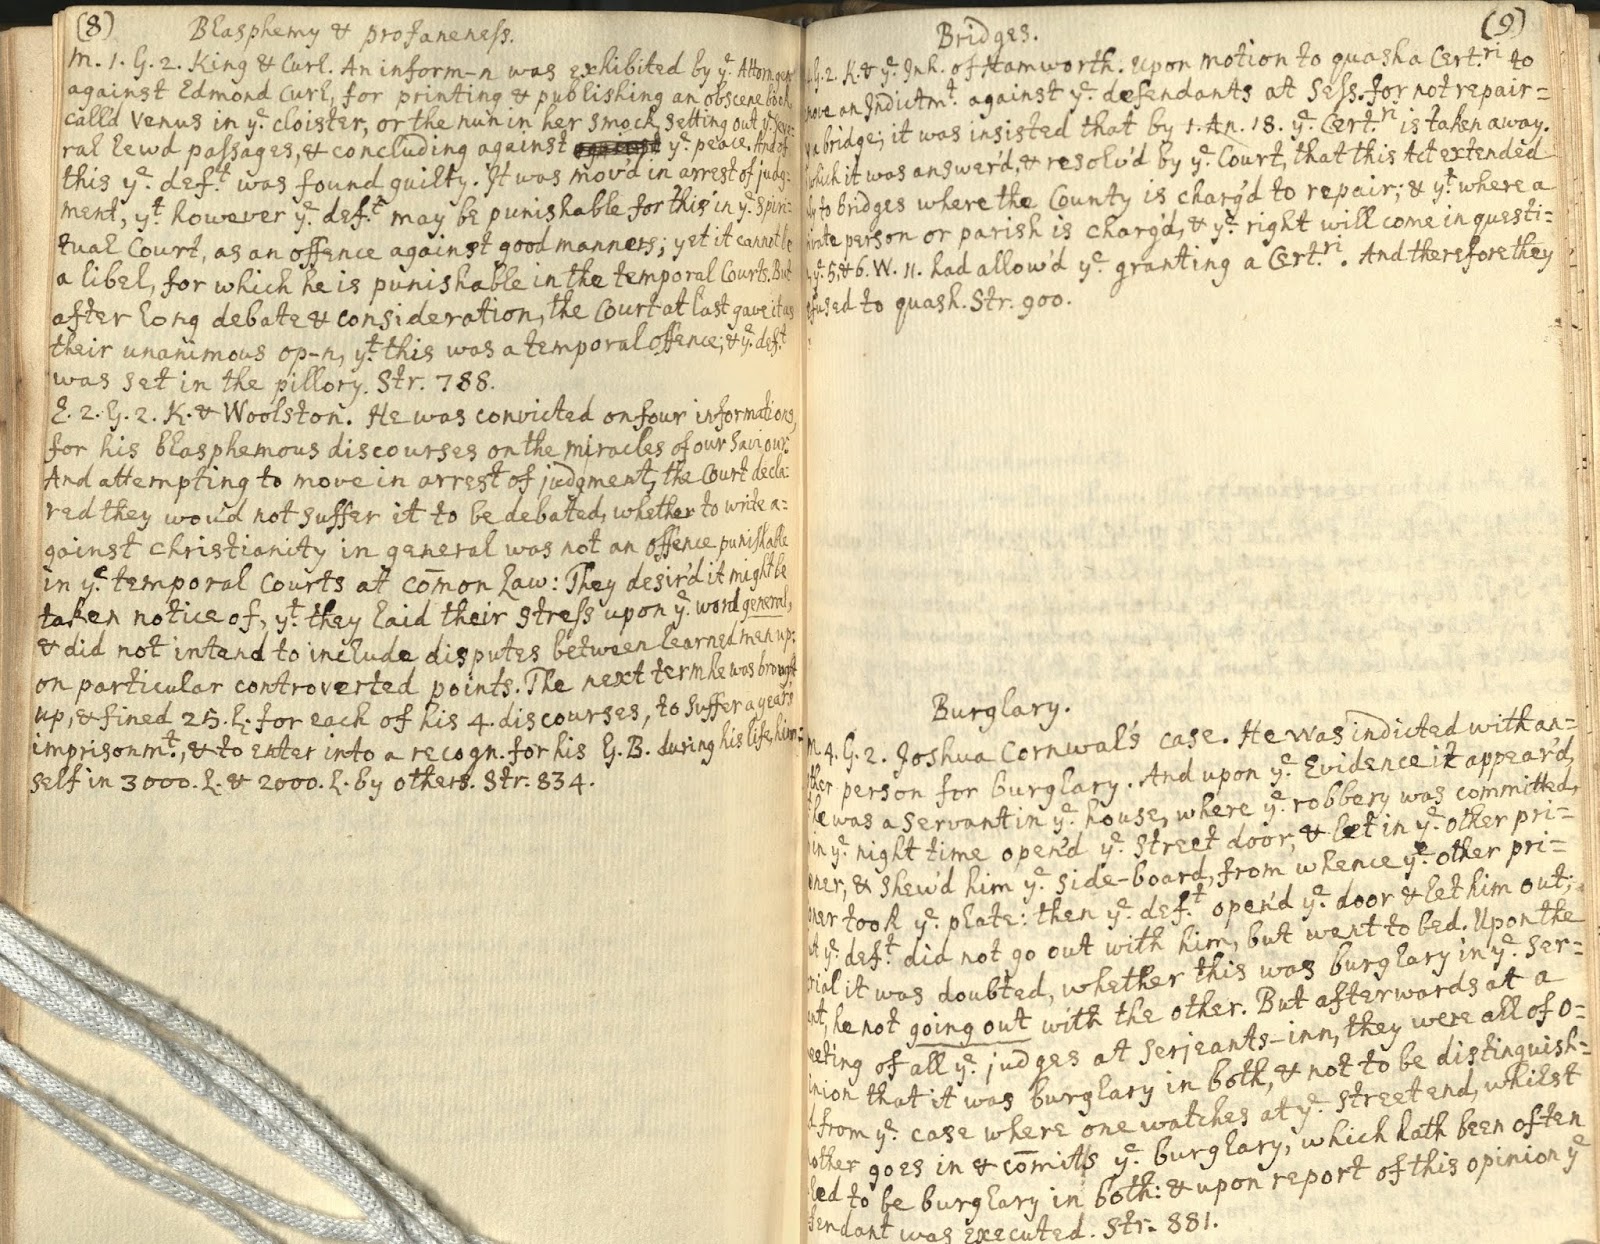 (8) Blasphemy & profaneness.
M. 1. G. 2. King & Curl. An inform-n was exhibited by yͤ Attorn. gen
against Edmond Curl, for printing & publishing an obscene book
call'd Venus in yͤ cloister, or the nun in her smock, setting out yͤ seve=
ral lewd passages, & concluding against against yͤ peace. And of
this yͤ defᵗ was found guilty. It was mov'd in arrest of judg-
ment, yᵗ however yͤ defᵗ may be punishable for this in yͤ Spiri-
tual Court, as an offence against good manners; yet it cannot be
a libel, for which he is punishable in the temporal Courts. But
after long debate & consideration, the Court at last gave it as
their unanimous op-n, yᵗ this was a temporal offence; & yͤ defᵗ
was set in the pillory. Str. 788.
E. 2. G. 2. K. & Woolston. He was convicted on four informations,
for his blasphemous discourses on the miracles of our Saviour.
And attempting to move in arrest of judgment, the Court decla-
red they wou'd not suffer it to be debated, whether to write a=
gainst christianity in general was not an offence punishable
in yͤ temporal Courts at com̄on Law: They desir'd it might be
taken notice of, yᵗ they laid their stress upon yͤ word general,
& did not intend to include disputes between learned men up=
on particular controverted points. The next term he was brought
up, & fined 25. L. for each of his 4. discourses, to suffer a years
imprisonmᵗ, & to enter into a recogn. for his G. B. during his life, him=
self in 3000. L. & 2000. L. by others. Str. 834.
Bridges. (9)
G. 2. K. & yͤ Inh. of Hamworth. Upon motion to quash a Cert.ʳⁱ to
move an Indictmᵗ against yͤ defendants at Sess. for not repair=
a bridge; it was insisted that by 1. An. 18. yͤ Cert.ʳⁱ is taken away.
which it was answer'd, & resolv'd by yͤ Court, that this Act extended
ly to bridges where the County is charg'd to repair; & yᵗ where a
private person or parish is charg'd, & yᵗ right will come in questi=
yͤ 5. & 6. W. 11. had allow'd yͤ granting a Cert.ʳⁱ. And therefore they
fused to quash. Str. 900.
Burglary.
M. 4. G. 2. Joshua Cornwal's case. He was indicted with an=
ther person for burglary. And upon yͤ Evidence it appear'd,
he was a servant in yͤ house, where yͤ robbery was committed,
in yͤ night time open'd yͤ street door, & let in yͤ other pri=
oner, & shew'd him yͤ side-board, from whence yͤ other pri=
oner took yͤ plate: then yͤ defᵗ open'd yͤ door & let him out;
ut yͤ defᵗ did not go out with him, but went to bed. Upon the
rial it was doubted, whether this was burglary in yͤ ser=
nt, he not going out with the other. But afterwards at a
eeting of all yͤ judges at Serjeants-inn, they were all of o=
inion that it was burglary in both, & not to be distinguish=
d from yͤ case where one watches at yͤ street end, whilst
nother goes in & com̄itts yͤ burglary, which hath been often
led to be burglary in both: & upon report of this opinion yͤ
fendant was executed. Str. 881.